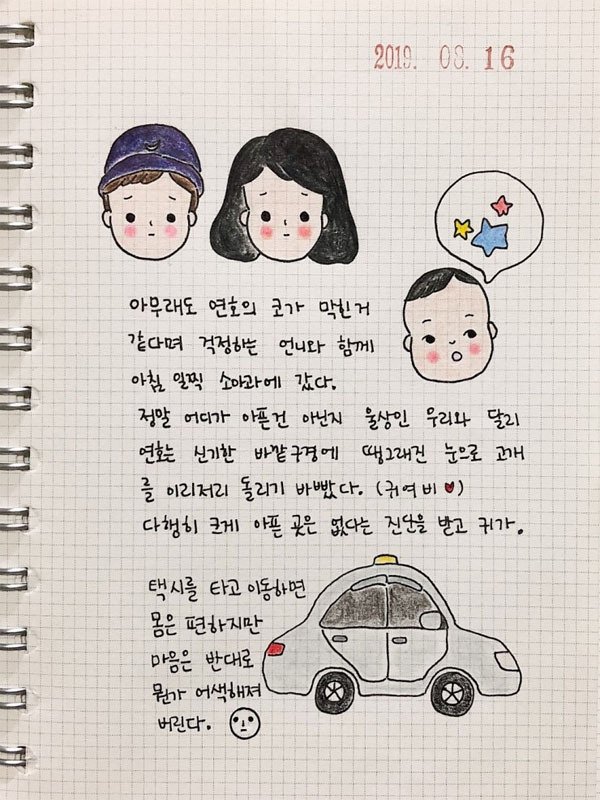 2019. 08. 16
아무래도 연호의 코가 막힌거
같다며 걱정하는 언니와 함께
아침 일찍 소아과에 갔다.
정말 어디가 아픈건 아닌지 울상인 우리와 달리
연호는 신기한 바깥구경에 땡그래진 눈으로 고개
를 이리저리 돌리기 바빴다. (귀여비♥)
다행히 크게 아픈 곳은 없다는 진단을 받고 귀가.
택시를 타고 이동하면
몸은 편하지만
마음은 반대로
뭔가 어색해져
버린다.